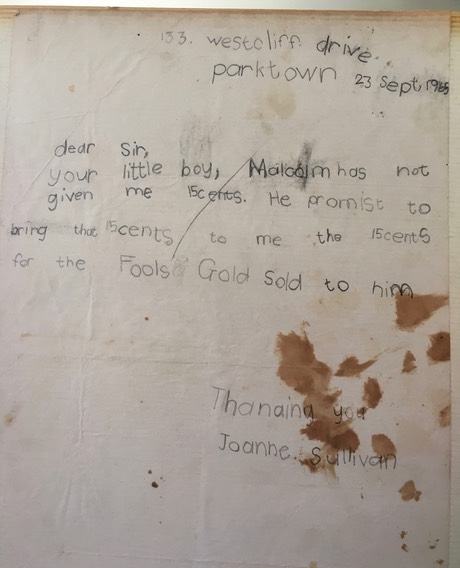 133. westcliff drive.
parktown 23 Sept, 1965
dear Sir,
your little boy, Malcolm has not
given me 15cents. He promist to
bring that 15cents to me the 15cents
for the Fools Gold Sold to him
Thanaing you
Joanne. Sullivan